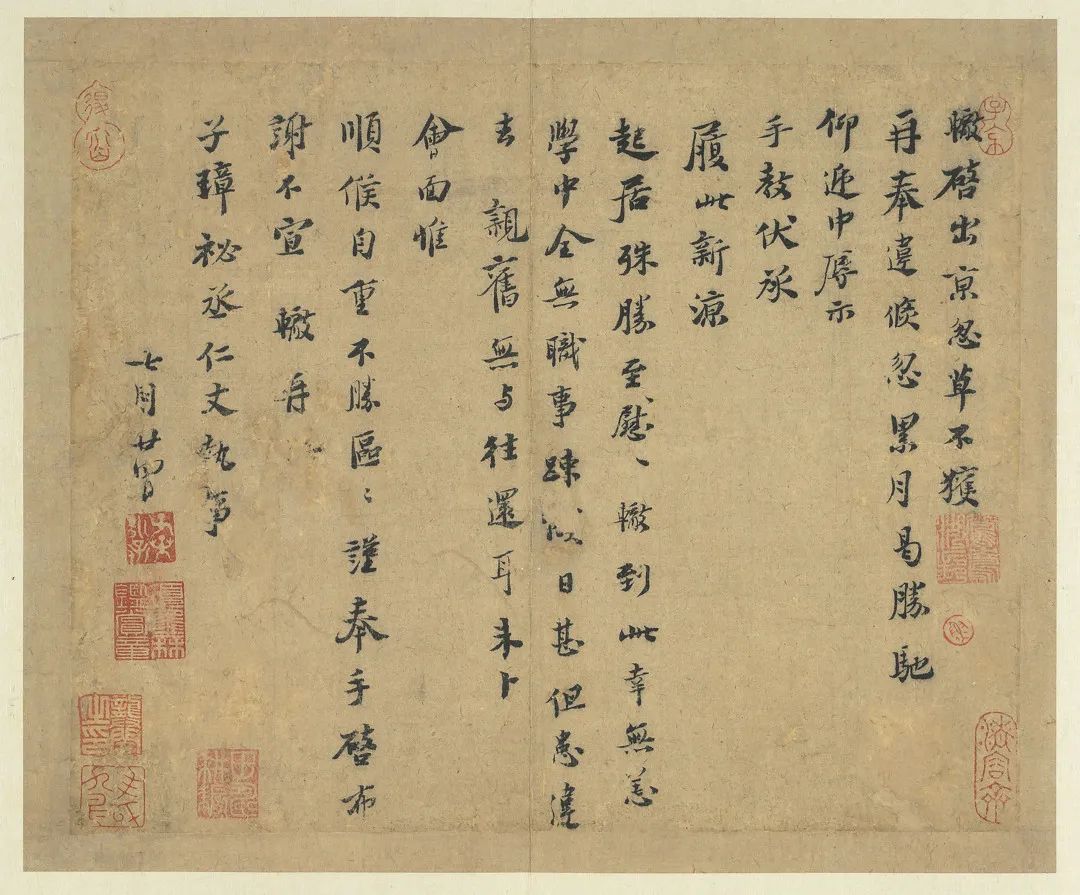 轍啓出京忽草不獲
再奉違倐忽累月曷勝馳
仰迎中辱示
手教伏承
履此新涼
起居殊勝至慰〻轍到此幸無恙
學中全無職事疎懶日甚但患違
去親舊無与往還耳未卜
會面惟
順候自重不勝區〻謹奉手啓布
謝不宣 轍再
子璋祕丞仁丈執事
七月廿四日